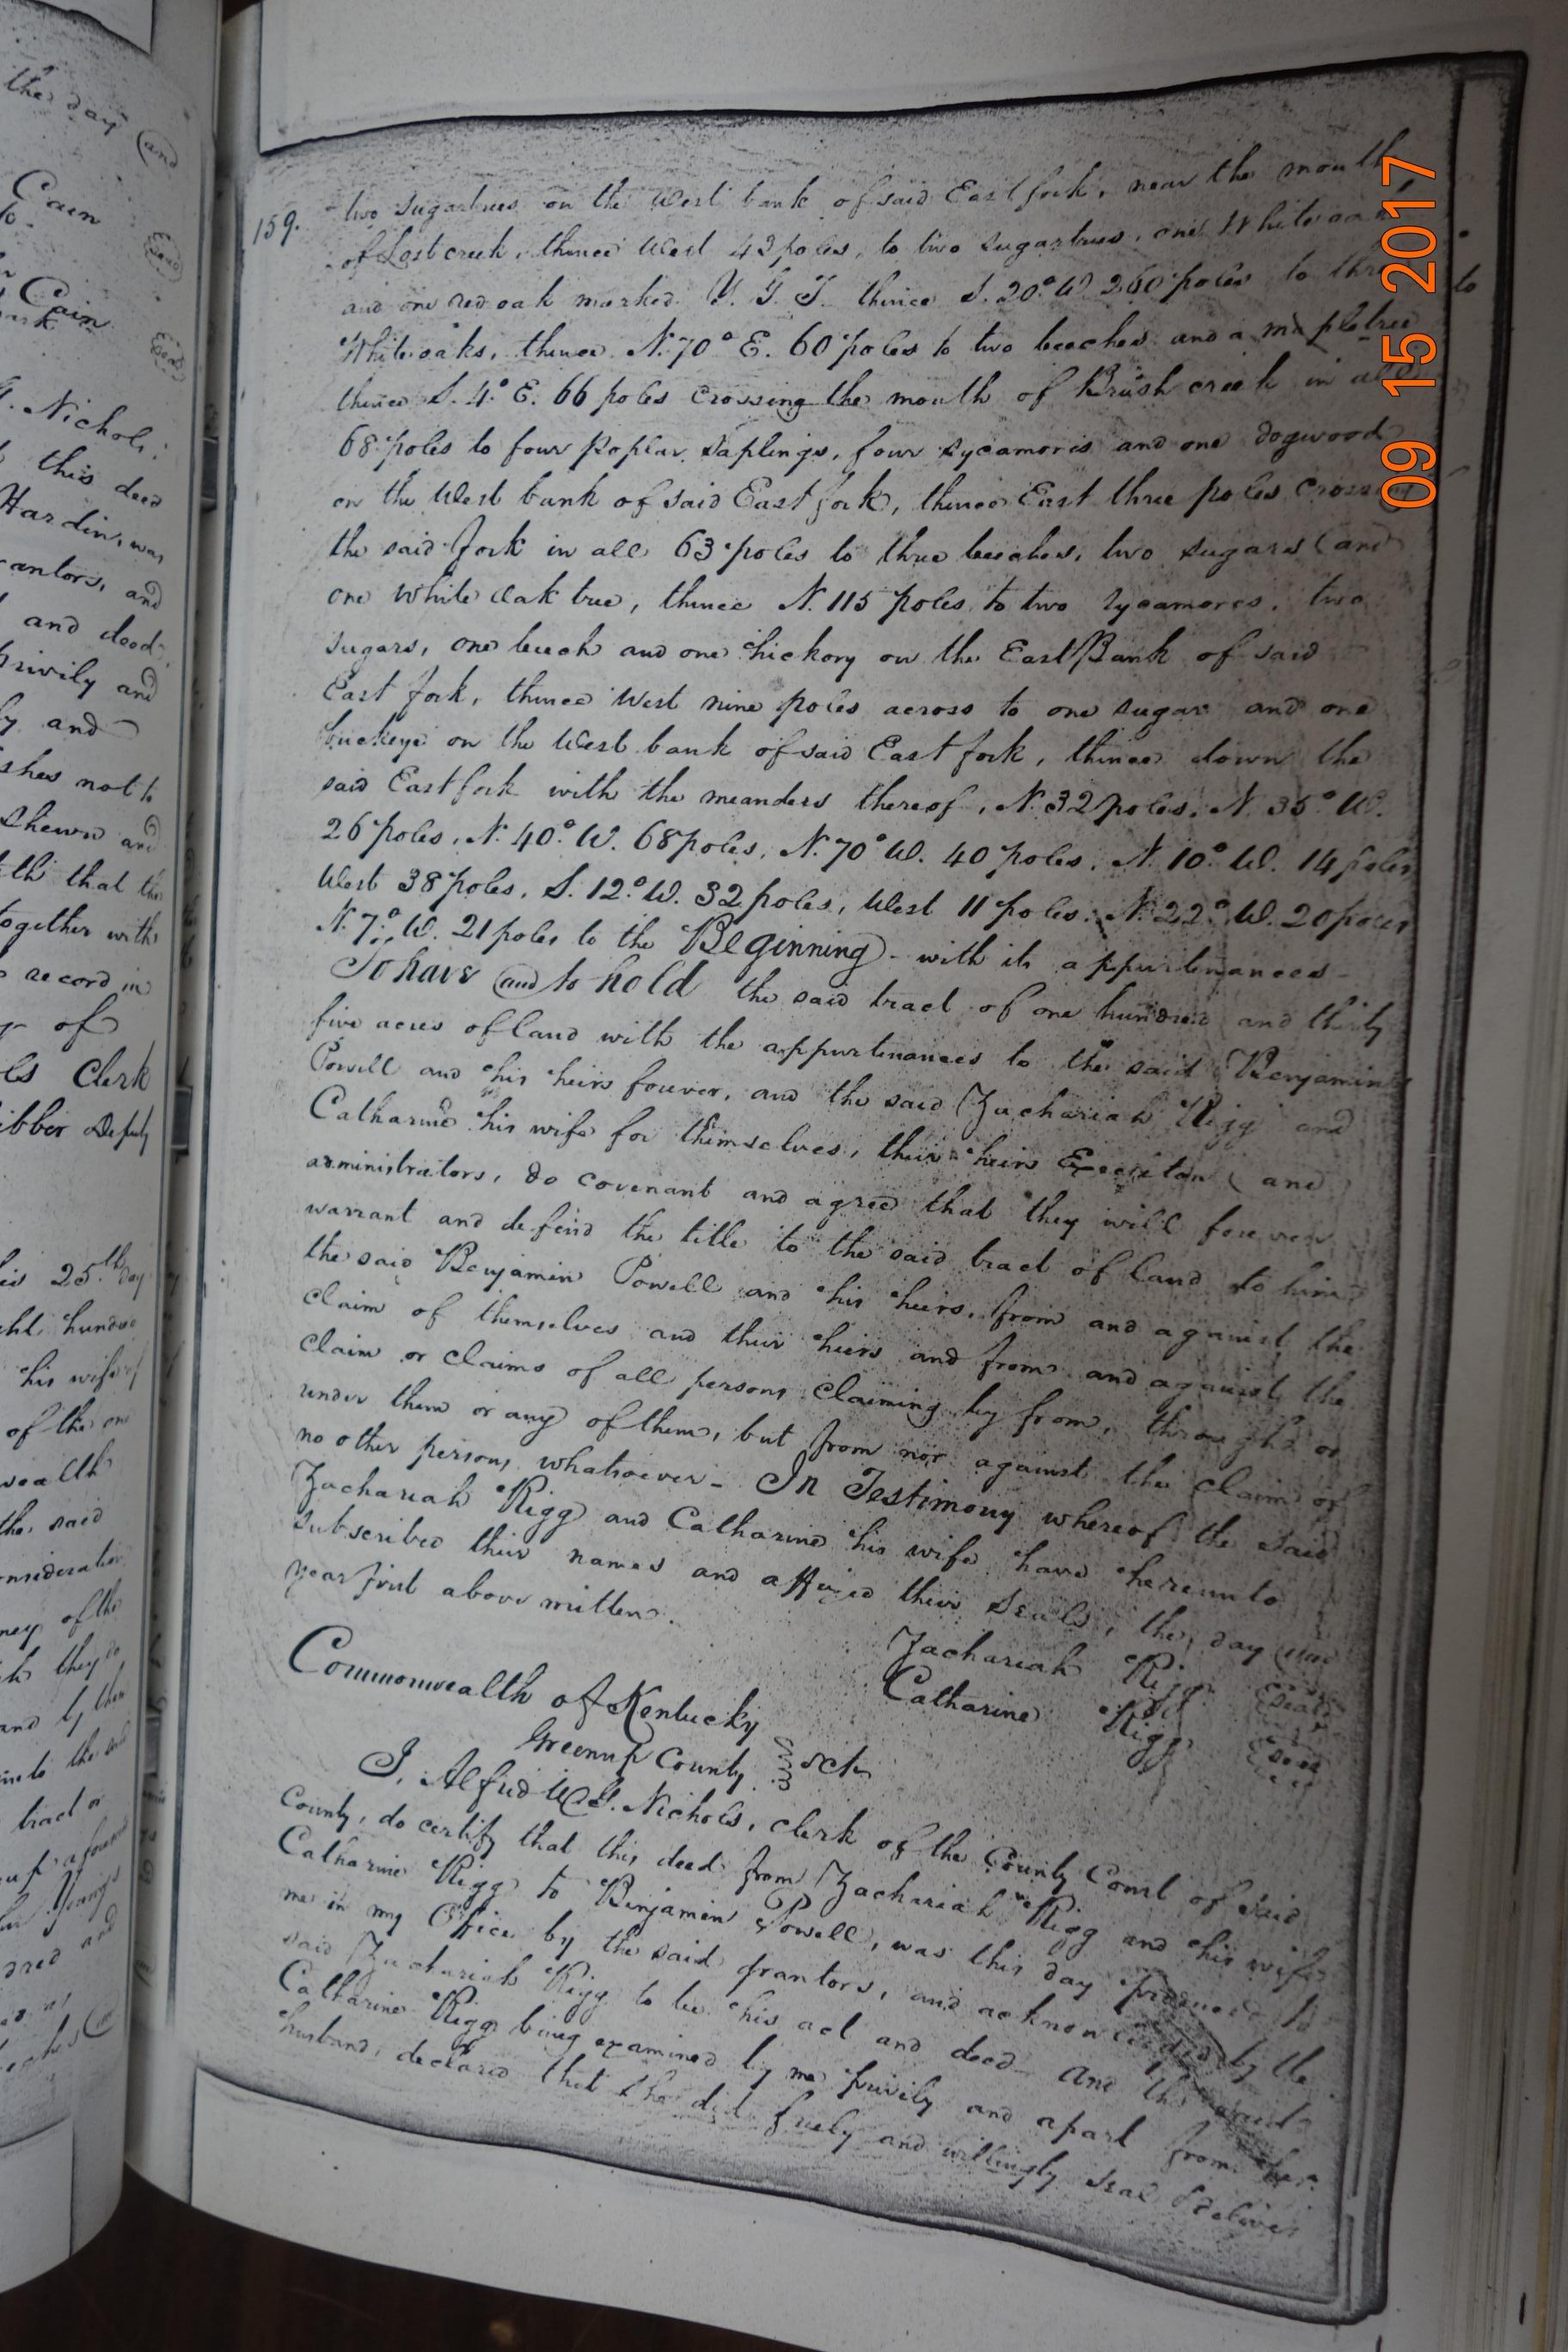 the day and
Cain
Seal
Cain
Seal
Nichols
this deed
Hardin, was
and
and deed
privily and
and
not to
shewn and
that the
together with
record in
of
Clerk
Deputy
25th day
hundred
his wife
of the
the said
they do
and by them
tract or
and
159.
two sugartrees on the West bank of said East fork, near the mouth
of Lost creek, thence West 42 poles, to two sugartrees, one White oak
and one red oak marked thence S. 20° W. 260 poles to three
White oaks, thence N. 70° E. 60 poles to two beeches and a maple tree
thence S. 4° E. 66 poles crossing the mouth of Brush creek in all
68 poles to four poplar saplings, four sycamores and one dogwood
on the West bank of said East fork, thence East three poles crossing
the said fork in all 63 poles to three beeches, two sugars and
one white oak tree, thence N. 115 poles to two sycamores, two
sugars, one beech and one hickory on the East Bank of said
East fork, thence West nine poles across to one sugar and one
buckeye on the West bank of said East fork, thence down the
said East fork with the meanders thereof, N. 32 poles, N. 35° W.
26 poles, N. 40° W. 68 poles, N. 70° W. 40 poles, N. 10° W. 14 poles
West 38 poles, S. 12° W. 32 poles, West 11 poles, N. 22° W. 20 poles
N. 7° W. 21 poles to the Beginning - with its appurtenances -
To have and to hold the said tract of one hundred and thirty
five acres of land with the appurtenances to the said Benjamin
Powell and his heirs forever, and the said Zachariah Rigg and
Catharine his wife for themselves, their heirs Executors and
administrators, do covenant and agree that they will forever
warrant and defend the title to the said tract of land to him
the said Benjamin Powell and his heirs, from and against the
claim of themselves and their heirs and from and against the
claim or claims of all persons claiming by from, through or
under them or any of them, but from nor against the claim of
no other persons whatsoever - In Testimony whereof the said
Zachariah Rigg and Catharine his wife have hereunto
subscribed their names and affixed their Seals, the day and
year first above written.
Zachariah Rigg Seal
Catharine Rigg Seal
Commonwealth of Kentucky
Greenup County sct.
I, Alfred W. G. Nichols, clerk of the County Court of said
County, do certify that this deed from Zachariah Rigg and his wife
Catharine Rigg to Benjamin Powell, was this day produced to
me in my Office by the said grantors, and acknowledged by the
said Zachariah Rigg to be his act and deed - And the said
Catharine Rigg being examined by me privily and apart from her
husband, declared that she did freely and willingly seal & deliver
to
09 15 2017